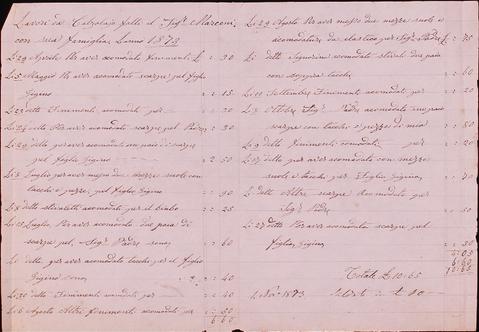 Lavori da Calzolajo fatti al Sigr Marconi
con sua famiglia. Anno 1873
Li 29 Aprile Per aver acomodato finimenti £ = 30
Li 5 Maggio Per aver acomodato scarpe pel figlio
Gigino = = 15
Li 22 detto Finimenti acomodati per = = 30
Li 24 detto Per aver acomodato scarpe pel Padre = = 30
Li 29 detto per aver acomodato un paio di scarpe
pel figlio Gigino = 2 50
Li 3 Luglio per aver messo due mezze suole con
tacchi e pezze, pel figlio Gigino = = 90
Li 8 detto stivaletti acomodati per il bimbo = = 25
Li 15 Luglio, Per aver acomodato due paia di
scarpe pel, Sigr Padre = = 60
Li detto per aver acomodato tacchi per il figlio
Gigino = = 40
Li 20 detto Finimenti acomodati per = = 40
Li 6 Agosto Altri finimenti acomodati per = = 50
6.60
Li 29 Agosto Per aver messo due mezze suole e
acomodatura da elastico per Sigr Padre £ = 75
Li detto Signorino acomodato stivali due paia
con tacchi = = 60
Li 11 Settembre Finimenti acomodati per = = 20
Li 3 Ottobre Sigr Padre acomodato un paio
scarpe con tacchi e pezze di mia = = 80
Li 9 detto finimenti comodati per = = 20
Li 17 detto per aver acomodato con mezze
suole e tacchi per Figlio Gigino, = = 70
Li detto Altre scarpe acomodate per
Sigr Padre = = 50
Li 27 detto Per aver acomodato scarpe pel
figlio, Gigino, = = 30
4.05
6.60
10.65
Totale £ 10.65
1873 £ 10